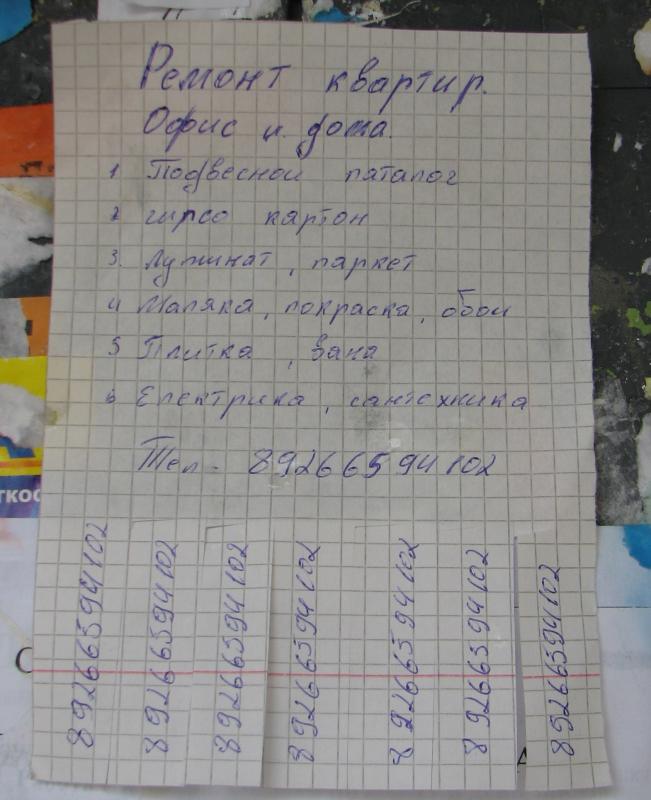 Ремонт квартир.
Офис и. дома.
1 Подвесной паталог
2 гипсо картон
3. Лупинат, паркет
4 Маляка, покраска, обои
5 Плитка, вана
6 Електрика, сантехника
Тел - 89266594102
89266594102
89266594102
89266594102
89266594102
89266594102
89266594102
89266594102
ткос
С